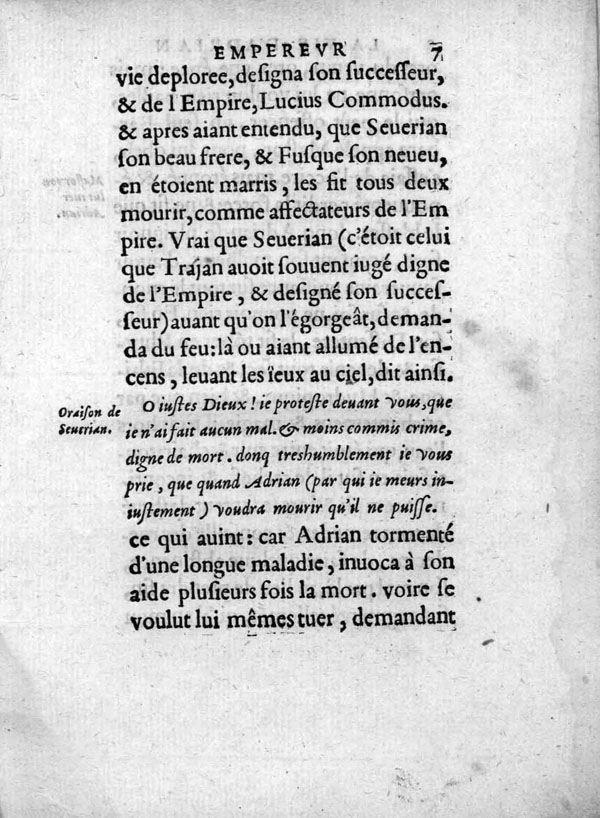 EMPEREVR 7
vie deploree, deſigna ſon ſucceſſeur,
& de l'Empire, Lucius Commodus.
& apres aiant entendu, que Seuerian
ſon beau frere, & Fuſque ſon neueu,
en étoient marris, les fit tous deux
mourir, comme affectateurs de l'Em
pire. Vrai que Seuerian (c'étoit celui
que Trajan auoit ſouuent iugé digne
de l'Empire, & deſigné ſon ſucceſ-
ſeur) auant qu'on l'égorgeât, deman-
da du feu: là ou aiant allumé de l'en-
cens, leuant les ïeux au ciel, dit ainſi.
Oraiſon de
Seuerian.
O iuſtes Dieux! ie proteſte deuant vous, que
ie n'ai fait aucun mal. & moins commis crime,
digne de mort. donq treshumblement ie vous
prie, que quand Adrian (par qui ie meurs in-
iuſtement) voudra mourir qu'il ne puiſſe.
ce qui auint: car Adrian tormenté
d'une longue maladie, inuoca à ſon
aide pluſieurs fois la mort. voire ſe
voulut lui mêmes tuer, demandant